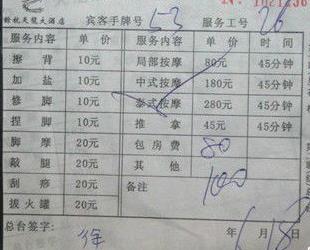 № 1621236
余杭天龍大酒店 宾客手牌号 53 服务工号 26
服务内容 单价 服务内容 单价 时间
擦背 10元 局部按摩 80元 45分钟
加盐 10元 中式按摩 180元 45分钟
修脚 10元 泰式按摩 280元 45分钟
捏脚 10元 推拿 45元 45分钟
脚摩 20元 包房费 80
敲腿 20元 其他
刮痧 20元 备注 100
拔火罐 20元
总台签字: 徐 年 6月18日